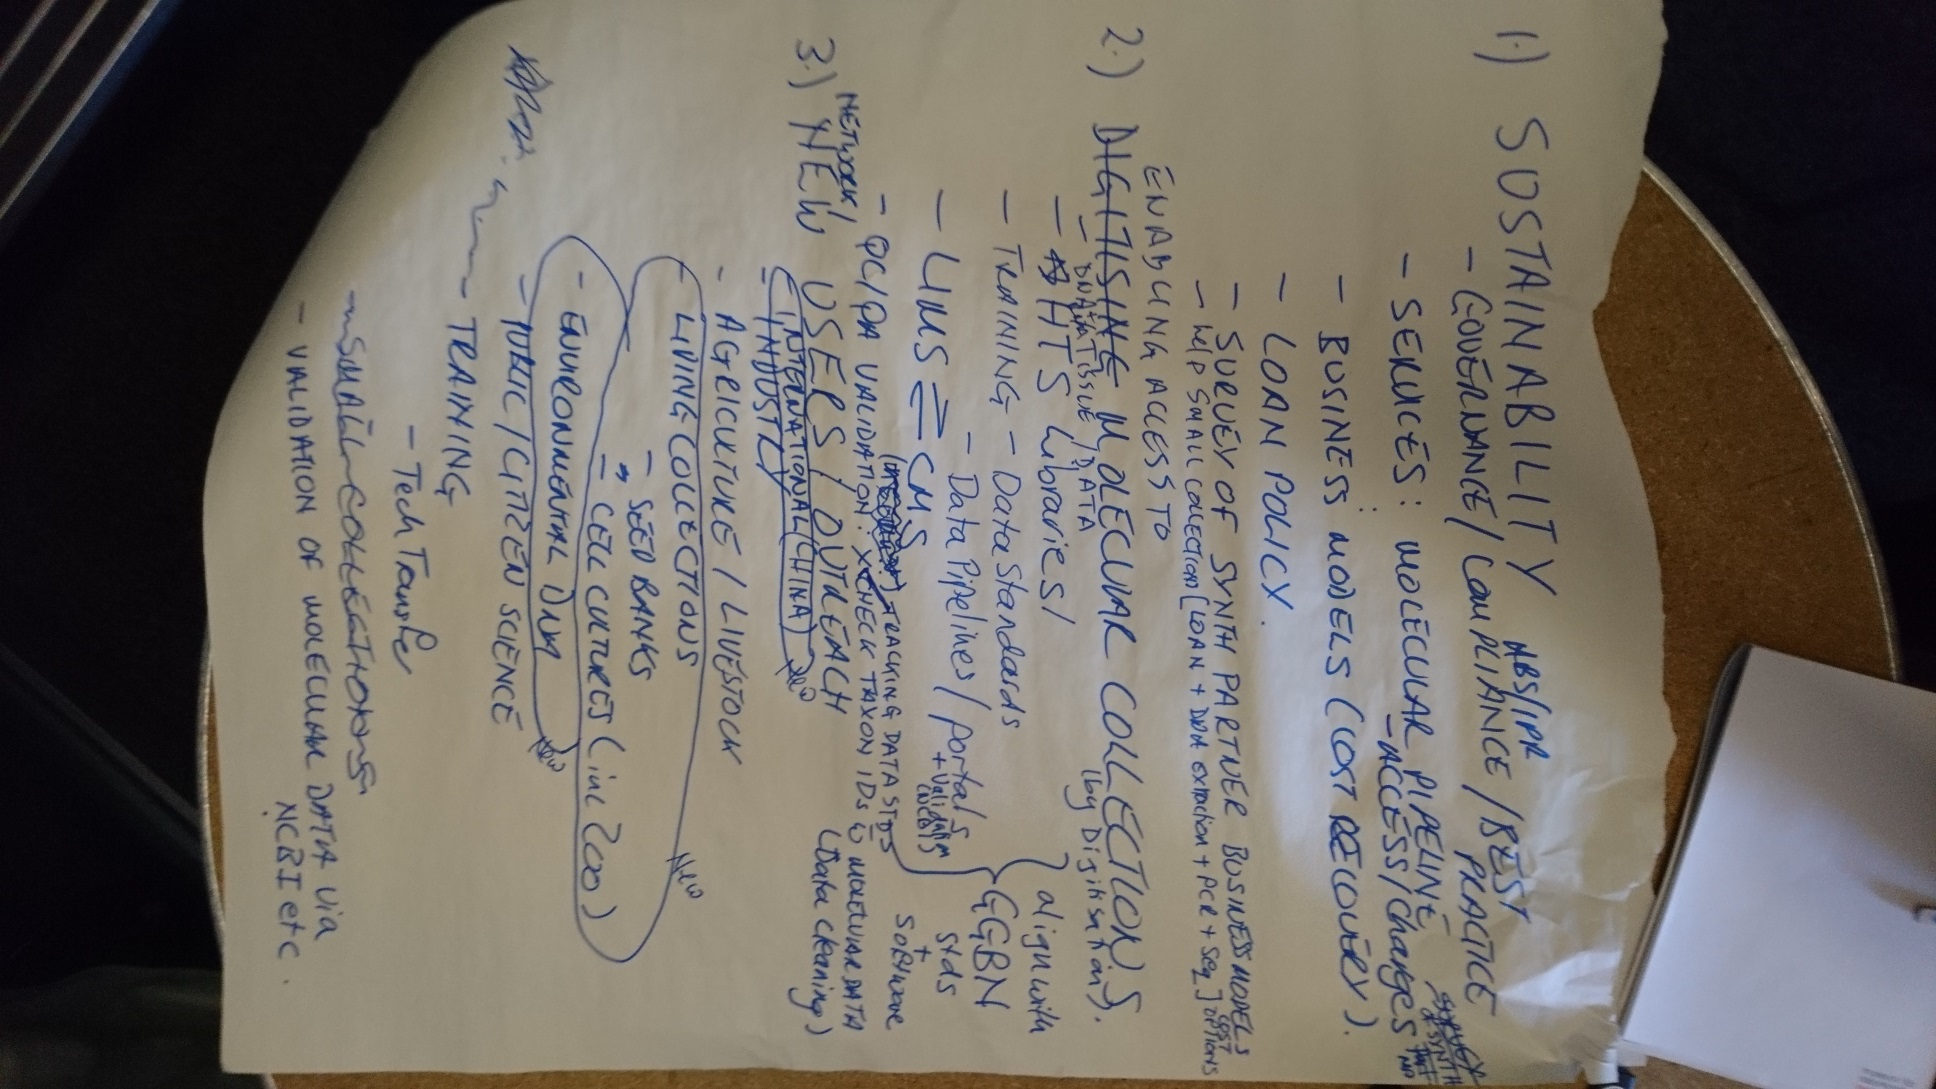 1.) SUSTAINABILITY
ABS/IPR
- GOVERNANCE / COMPLIANCE / BEST PRACTICE
- SERVICES: MOLECULAR PIPELINE
- ACCESS/charges
- BUSINESS MODELS (COST RECOVERY).
- LOAN POLICY.
- SURVEY OF SYNTH PARTNER BUSINESS MODELS
- Help SMALL COLLECTION [LOAN + DNA extraction + PCR + Seq] COST OPTIONS
ENABLING ACCESS TO
2.) DIGITISING MOLECULAR COLLECTIONS
(by Digitisation).
- DNA/TISSUE/DATA
- HTS Libraries/
- TRAINING - Data Standards
- Data Pipelines / Portals
+ Validation (NCBI)
} align with GGBN
Stds + Software
- LIMS ⇌ CMS
- QC/QA VALIDATION: XCHECK TAXON IDs MOLECULAR DATA
TRACKING DATA STDS
(Data cleaning)
NETWORK/
3.) NEW USERS / OUTREACH
- INTERNATIONAL (CHINA) New
- INDUSTRY
- AGRICULTURE / LIVESTOCK
- LIVING COLLECTIONS New
- SEED BANKS
- CELL CULTURES (inc Zoo)
- ENVIRONMENTAL DNA New
- PUBLIC / CITIZEN SCIENCE
- TRAINING
- Tech Transfer
- SMALL COLLECTIONS
- VALIDATION OF MOLECULAR DATA via
NCBI etc.